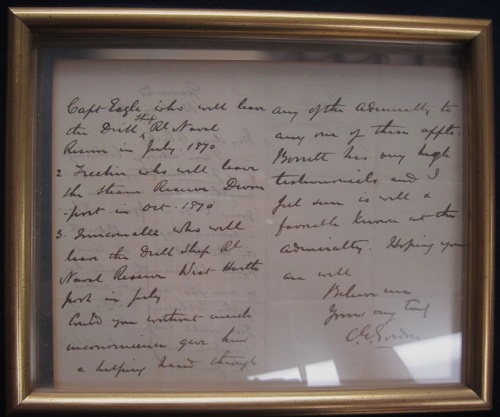 Capt Eagle who will leave
the Drill Ship Rl Naval
Reserve in July 1870
2 Trechin who will leave
the Steam Reserve Devon
-port in Oct. 1870
3. Trincomalee who will
leave the Drill Ship Rl
Naval Reserve West Hartle
pool in July.
Could you without much
inconvenience give him
a helping hand through
any of the Admiralty to
any one of these appts.
Borrett has very high
testimonials and I
feel sure is well &
favorably known at the
Admiralty. Hoping you
are well
Believe me
Yours very truly
C. G. Gordon